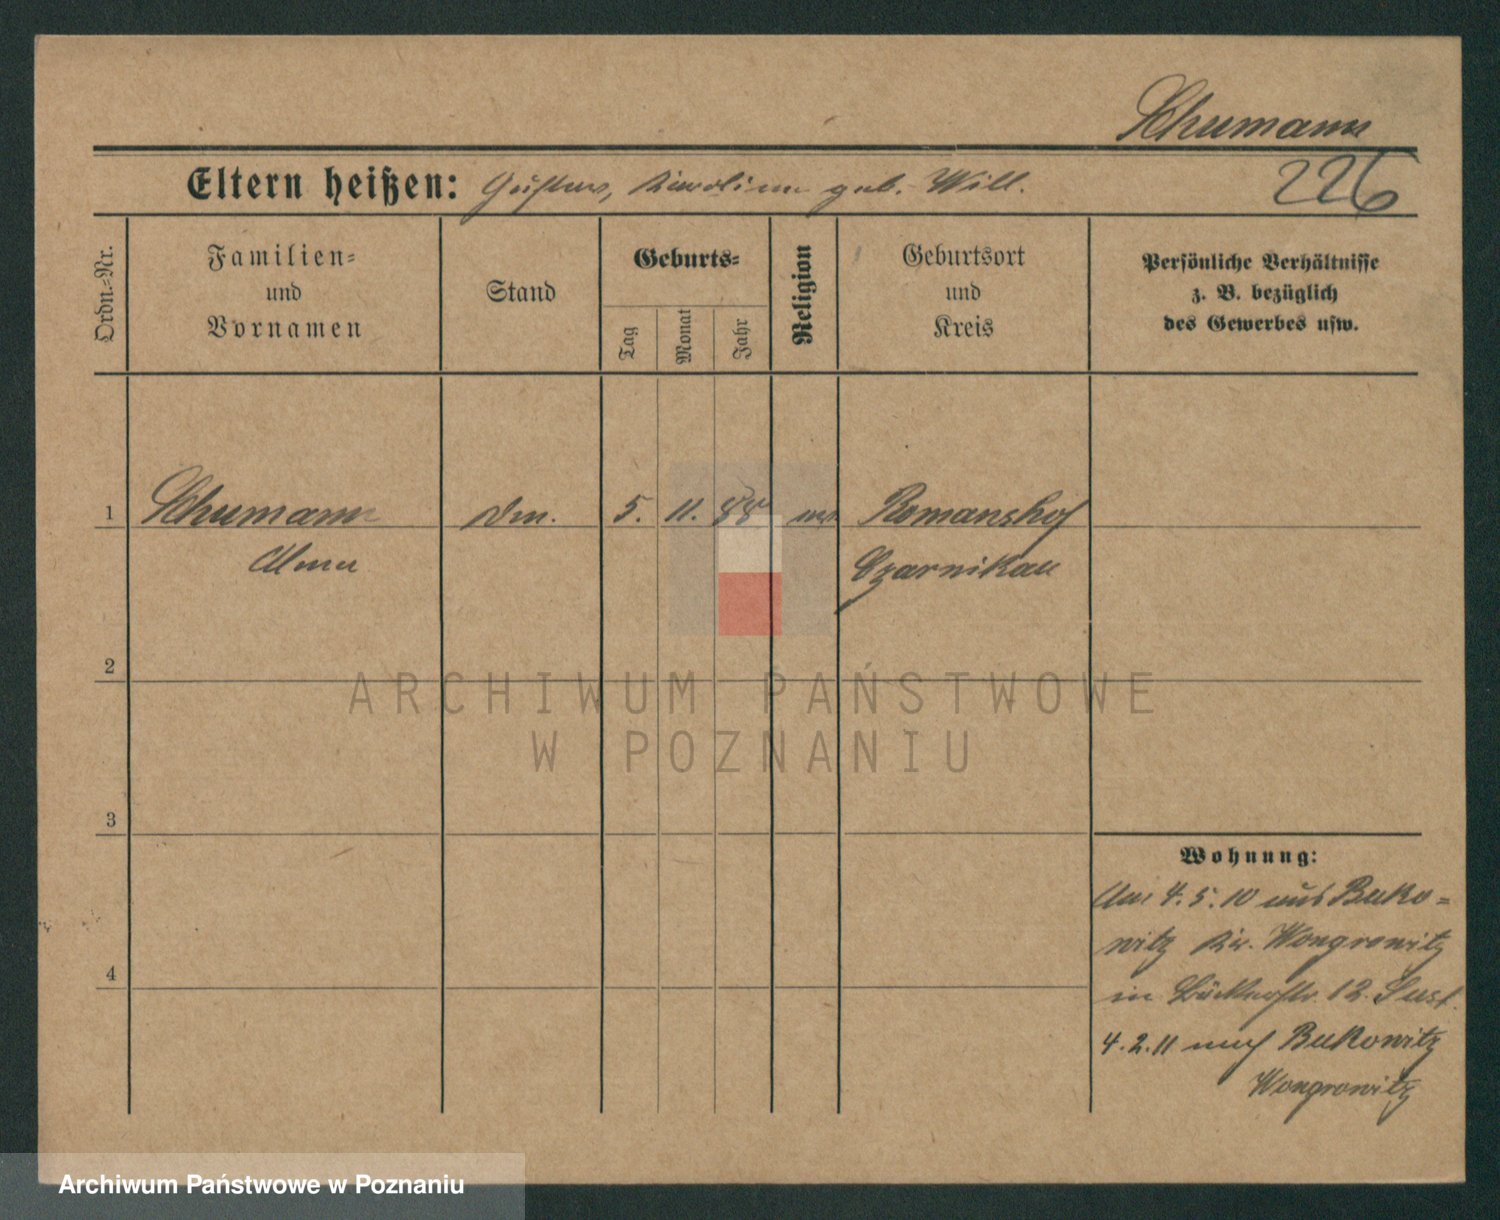 Schumann
226
Eltern heißen: Gustav, Karoline geb. Will.
Ordn.-Nr.
Familien-
und
Vornamen
Stand
Geburts-
Tag
Monat
Jahr
Religion
Geburtsort
und
Kreis
Persönliche Verhältnisse
z. B. bezüglich
des Gewerbes usw.
1
Schumann
5. 11. 88
Romanshof
Alma
Czarnikau
2
ARCHIWUM PAŃSTWOWE
W POZNANIU
3
4
Wohnung:
Am 4.5.10 aus Buko-
witz Kr. Wongrowitz
in 12.
4.2.11 nach Bukowitz
Wongrowitz
Archiwum Państwowe w Poznaniu